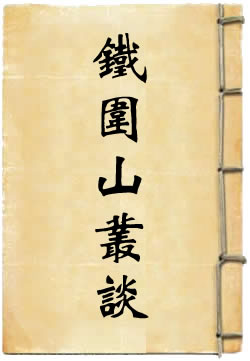 鐵圍山叢談